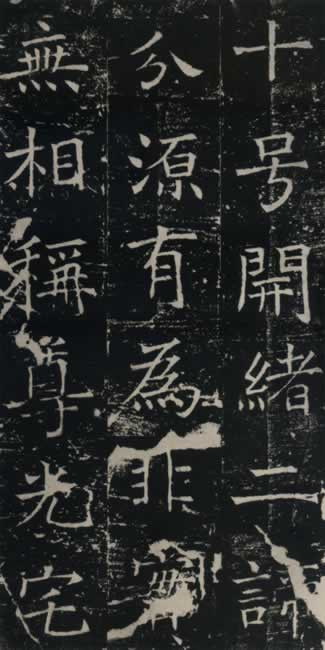 十号開緒二諦
分源有為非
無相稱尊光宅